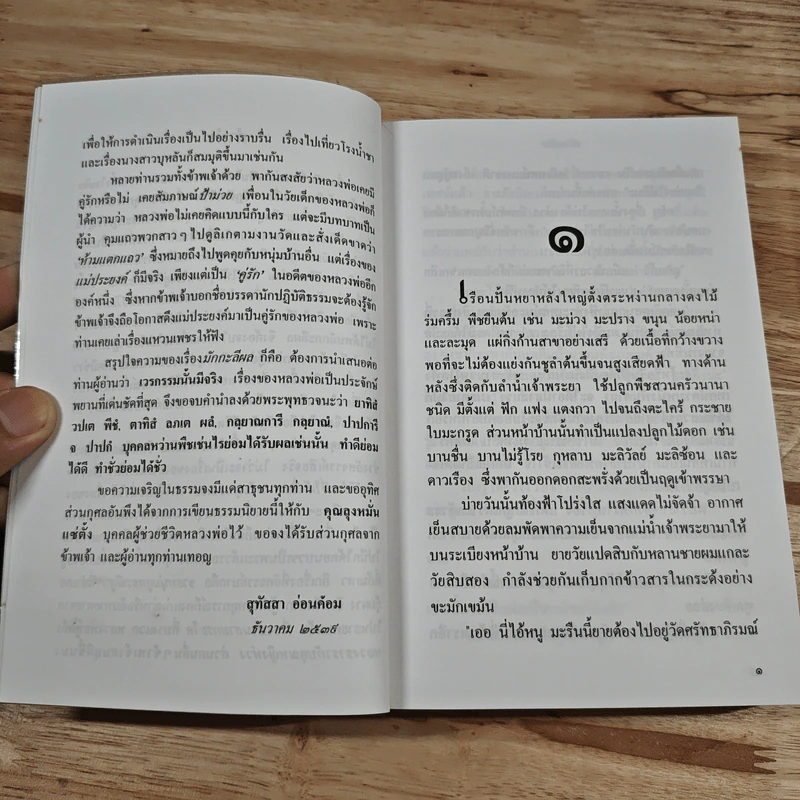 เพื่อให้การดำเนินเรื่องเป็นไปอย่างราบรื่น เรื่องไปเที่ยวโรงน้ำชา
และเรื่องนางสาวบุหลันก็สมมุติขึ้นมาเช่นกัน
หลายท่านรวมทั้งข้าพเจ้าด้วย พากันสงสัยว่าหลวงพ่อเคยมี
คู่รักหรือไม่ เคยสัมภาษณ์ป้าม่วย เพื่อนในวัยเด็กของหลวงพ่อก็
ได้ความว่า หลวงพ่อไม่เคยคิดแบบนี้กับใคร แต่จะมีบทบาทเป็น
ผู้นำ คุมแถวพวกสาวๆ ไปดูลิเกตามงานวัดและสั่งเด็ดขาดว่า
'ห้ามแตกแถว' ซึ่งหมายถึงไปพูดคุยกับหนุ่มบ้านอื่น แต่เรื่องของ
แม่ประยงค์ ก็มีจริง เพียงแต่เป็น 'คู่รัก' ในอดีตของหลวงพ่ออีก
องค์หนึ่ง ซึ่งหากข้าพเจ้าบอกชื่อบรรดานักปฏิบัติธรรมจะต้องรู้จัก
ข้าพเจ้าจึงถือโอกาสดึงแม่ประยงค์มาเป็นคู่รักของหลวงพ่อ เพราะ
ท่านเคยเล่าเรื่องแหวนเพชรให้ฟัง
สรุปใจความของเรื่องมักกะลีผล ก็คือ ต้องการนำเสนอต่อ
ท่านผู้อ่านว่า เวรกรรมนั้นมีจริง เรื่องของหลวงพ่อเป็นประจักษ์
พยานที่เด่นชัดที่สุด จึงขอจบคำนำลงด้วยพระพุทธวจนะว่า ยาทิสํ
วปเต พีชํ, ตาทิสํ ลภเต ผลํ, กลฺยาณการี กลฺยาณํ, ปาปการี
จ ปาปกํ บุคคลหว่านพืชเช่นไรย่อมได้รับผลเช่นนั้น ทำดีย่อม
ได้ดี ทำชั่วย่อมได้ชั่ว
ขอความเจริญในธรรมจงมีแด่สาธุชนทุกท่าน และขออุทิศ
ส่วนกุศลอันพึงได้จากการเขียนธรรมนิยายนี้ให้กับ คุณลุงหมั่น
แซ่ตั้ง บุคคลผู้ช่วยชีวิตหลวงพ่อไว้ ขอจงได้รับส่วนกุศลจาก
ข้าพเจ้า และผู้อ่านทุกท่านเทอญ
สุทัสสา อ่อนค้อม
ธันวาคม ๒๕๓๙
๑
เรือนปั้นหยาหลังใหญ่ตั้งตระหง่านกลางดงไม้
ร่มครึ้ม พืชยืนต้น เช่น มะม่วง มะปราง ขนุน น้อยหน่า
และละมุด แผ่กิ่งก้านสาขาอย่างเสรี ด้วยเนื้อที่กว้างขวาง
พอที่จะไม่ต้องแย่งกันชูลำต้นขึ้นจนสูงเสียดฟ้า ทางด้าน
หลังซึ่งติดกับลำน้ำเจ้าพระยา ใช้ปลูกพืชสวนครัวนานา
ชนิด มีตั้งแต่ ฟัก แฟง แตงกวา ไปจนถึงตะไคร้ กระชาย
ใบมะกรูด ส่วนหน้าบ้านนั้นทำเป็นแปลงปลูกไม้ดอก เช่น
บานชื่น บานไม่รู้โรย กุหลาบ มะลิวัลย์ มะลิซ้อน และ
ดาวเรือง ซึ่งพากันออกดอกสะพรั่งด้วยเป็นฤดูเข้าพรรษา
บ่ายวันนั้นท้องฟ้าโปร่งใส แสงแดดไม่จัดจ้า อากาศ
เย็นสบายด้วยลมพัดพาความเย็นจากแม่น้ำเจ้าพระยามาให้
บนระเบียงหน้าบ้าน ยายวัยแปดสิบกับหลานชายผมแกละ
วัยสิบสอง กำลังช่วยกันเก็บกากข้าวสารในกระด้งอย่าง
ขะมักเขม้น
"เออ นี่ไอ้หนู มะรืนนี้ยายต้องไปอยู่วัดศรัทธาภิรมณ์
๑